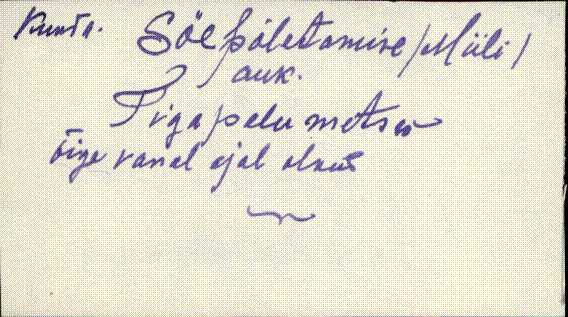 Kunda. Söe põletamise /Miili/
auk.
Piigapelu metsas
õige vanal ajal olnud